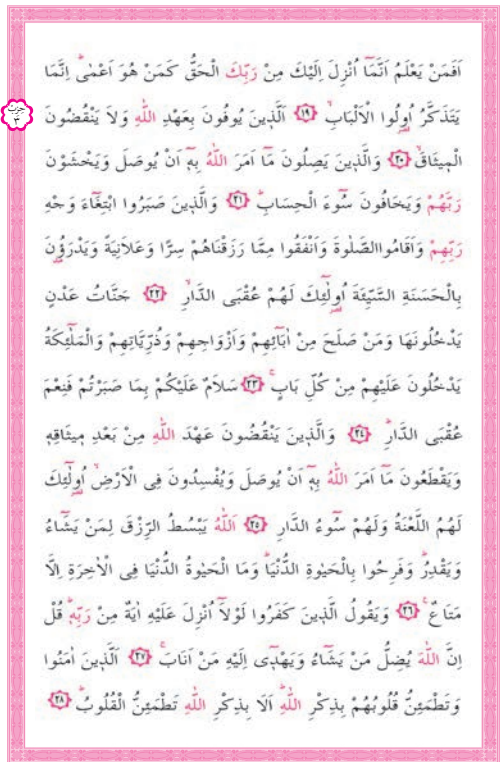 اَفَمَنْ يَعْلَمُ اَنَّمَٓا اُنْزِلَ اِلَيْكَ مِنْ رَبِّكَ الْحَقُّ كَمَنْ هُوَ اَعْمٰىۜ اِنَّمَا
يَتَذَكَّرُ اُو۬لُوا الْاَلْبَابِۙ ﴿١٩﴾ اَلَّذ۪ينَ يُوفُونَ بِعَهْدِ اللّٰهِ وَلَا يَنْقُضُونَ
حزب ٣
الْم۪يثَاقَۙ ﴿٢٠﴾ وَالَّذ۪ينَ يَصِلُونَ مَٓا اَمَرَ اللّٰهُ بِه۪ٓ اَنْ يُوصَلَ وَيَخْشَوْنَ
رَبَّهُمْ وَيَخَافُونَ سُٓوءَ الْحِسَابِۜ ﴿٢١﴾ وَالَّذ۪ينَ صَبَرُوا ابْتِغَٓاءَ وَجْهِ
رَبِّهِمْ وَاَقَامُواالصَّلٰوةَ وَاَنْفَقُوا مِمَّا رَزَقْنَاهُمْ سِرًّا وَعَلَانِيَةً وَيَدْرَؤُ۫نَ
بِالْحَسَنَةِ السَّيِّئَةَ اُو۬لٰٓئِكَ لَهُمْ عُقْبَى الدَّارِۙ ﴿٢٢﴾ جَنَّاتُ عَدْنٍ
يَدْخُلُونَهَا وَمَنْ صَلَحَ مِنْ اٰبَٓائِهِمْ وَاَزْوَاجِهِمْ وَذُرِّيَّاتِهِمْ وَالْمَلٰٓئِكَةُ
يَدْخُلُونَ عَلَيْهِمْ مِنْ كُلِّ بَابٍۚ ﴿٢٣﴾ سَلَامٌ عَلَيْكُمْ بِمَا صَبَرْتُمْ فَنِعْمَ
عُقْبَى الدَّارِۜ ﴿٢٤﴾ وَالَّذ۪ينَ يَنْقُضُونَ عَهْدَ اللّٰهِ مِنْ بَعْدِ م۪يثَاقِه۪
وَيَقْطَعُونَ مَٓا اَمَرَ اللّٰهُ بِه۪ٓ اَنْ يُوصَلَ وَيُفْسِدُونَ فِى الْاَرْضِۙ اُو۬لٰٓئِكَ
لَهُمُ اللَّعْنَةُ وَلَهُمْ سُٓوءُ الدَّارِ ﴿٢٥﴾ اَللّٰهُ يَبْسُطُ الرِّزْقَ لِمَنْ يَشَٓاءُ
وَيَقْدِرُۜ وَفَرِحُوا بِالْحَيٰوةِ الدُّنْيَاۜ وَمَا الْحَيٰوةُ الدُّنْيَا فِى الْاٰخِرَةِ اِلَّا
مَتَاعٌۚ ﴿٢٦﴾ وَيَقُولُ الَّذ۪ينَ كَفَرُوا لَوْلَٓا اُنْزِلَ عَلَيْهِ اٰيَةٌ مِنْ رَبِّه۪ۜ قُلْ
اِنَّ اللّٰهَ يُضِلُّ مَنْ يَشَٓاءُ وَيَهْد۪ٓى اِلَيْهِ مَنْ اَنَابَۚ ﴿٢٧﴾ اَلَّذ۪ينَ اٰمَنُوا
وَتَطْمَئِنُّ قُلُوبُهُمْ بِذِكْرِ اللّٰهِۜ اَلَا بِذِكْرِ اللّٰهِ تَطْمَئِنُّ الْقُلُوبُۜ ﴿٢٨﴾